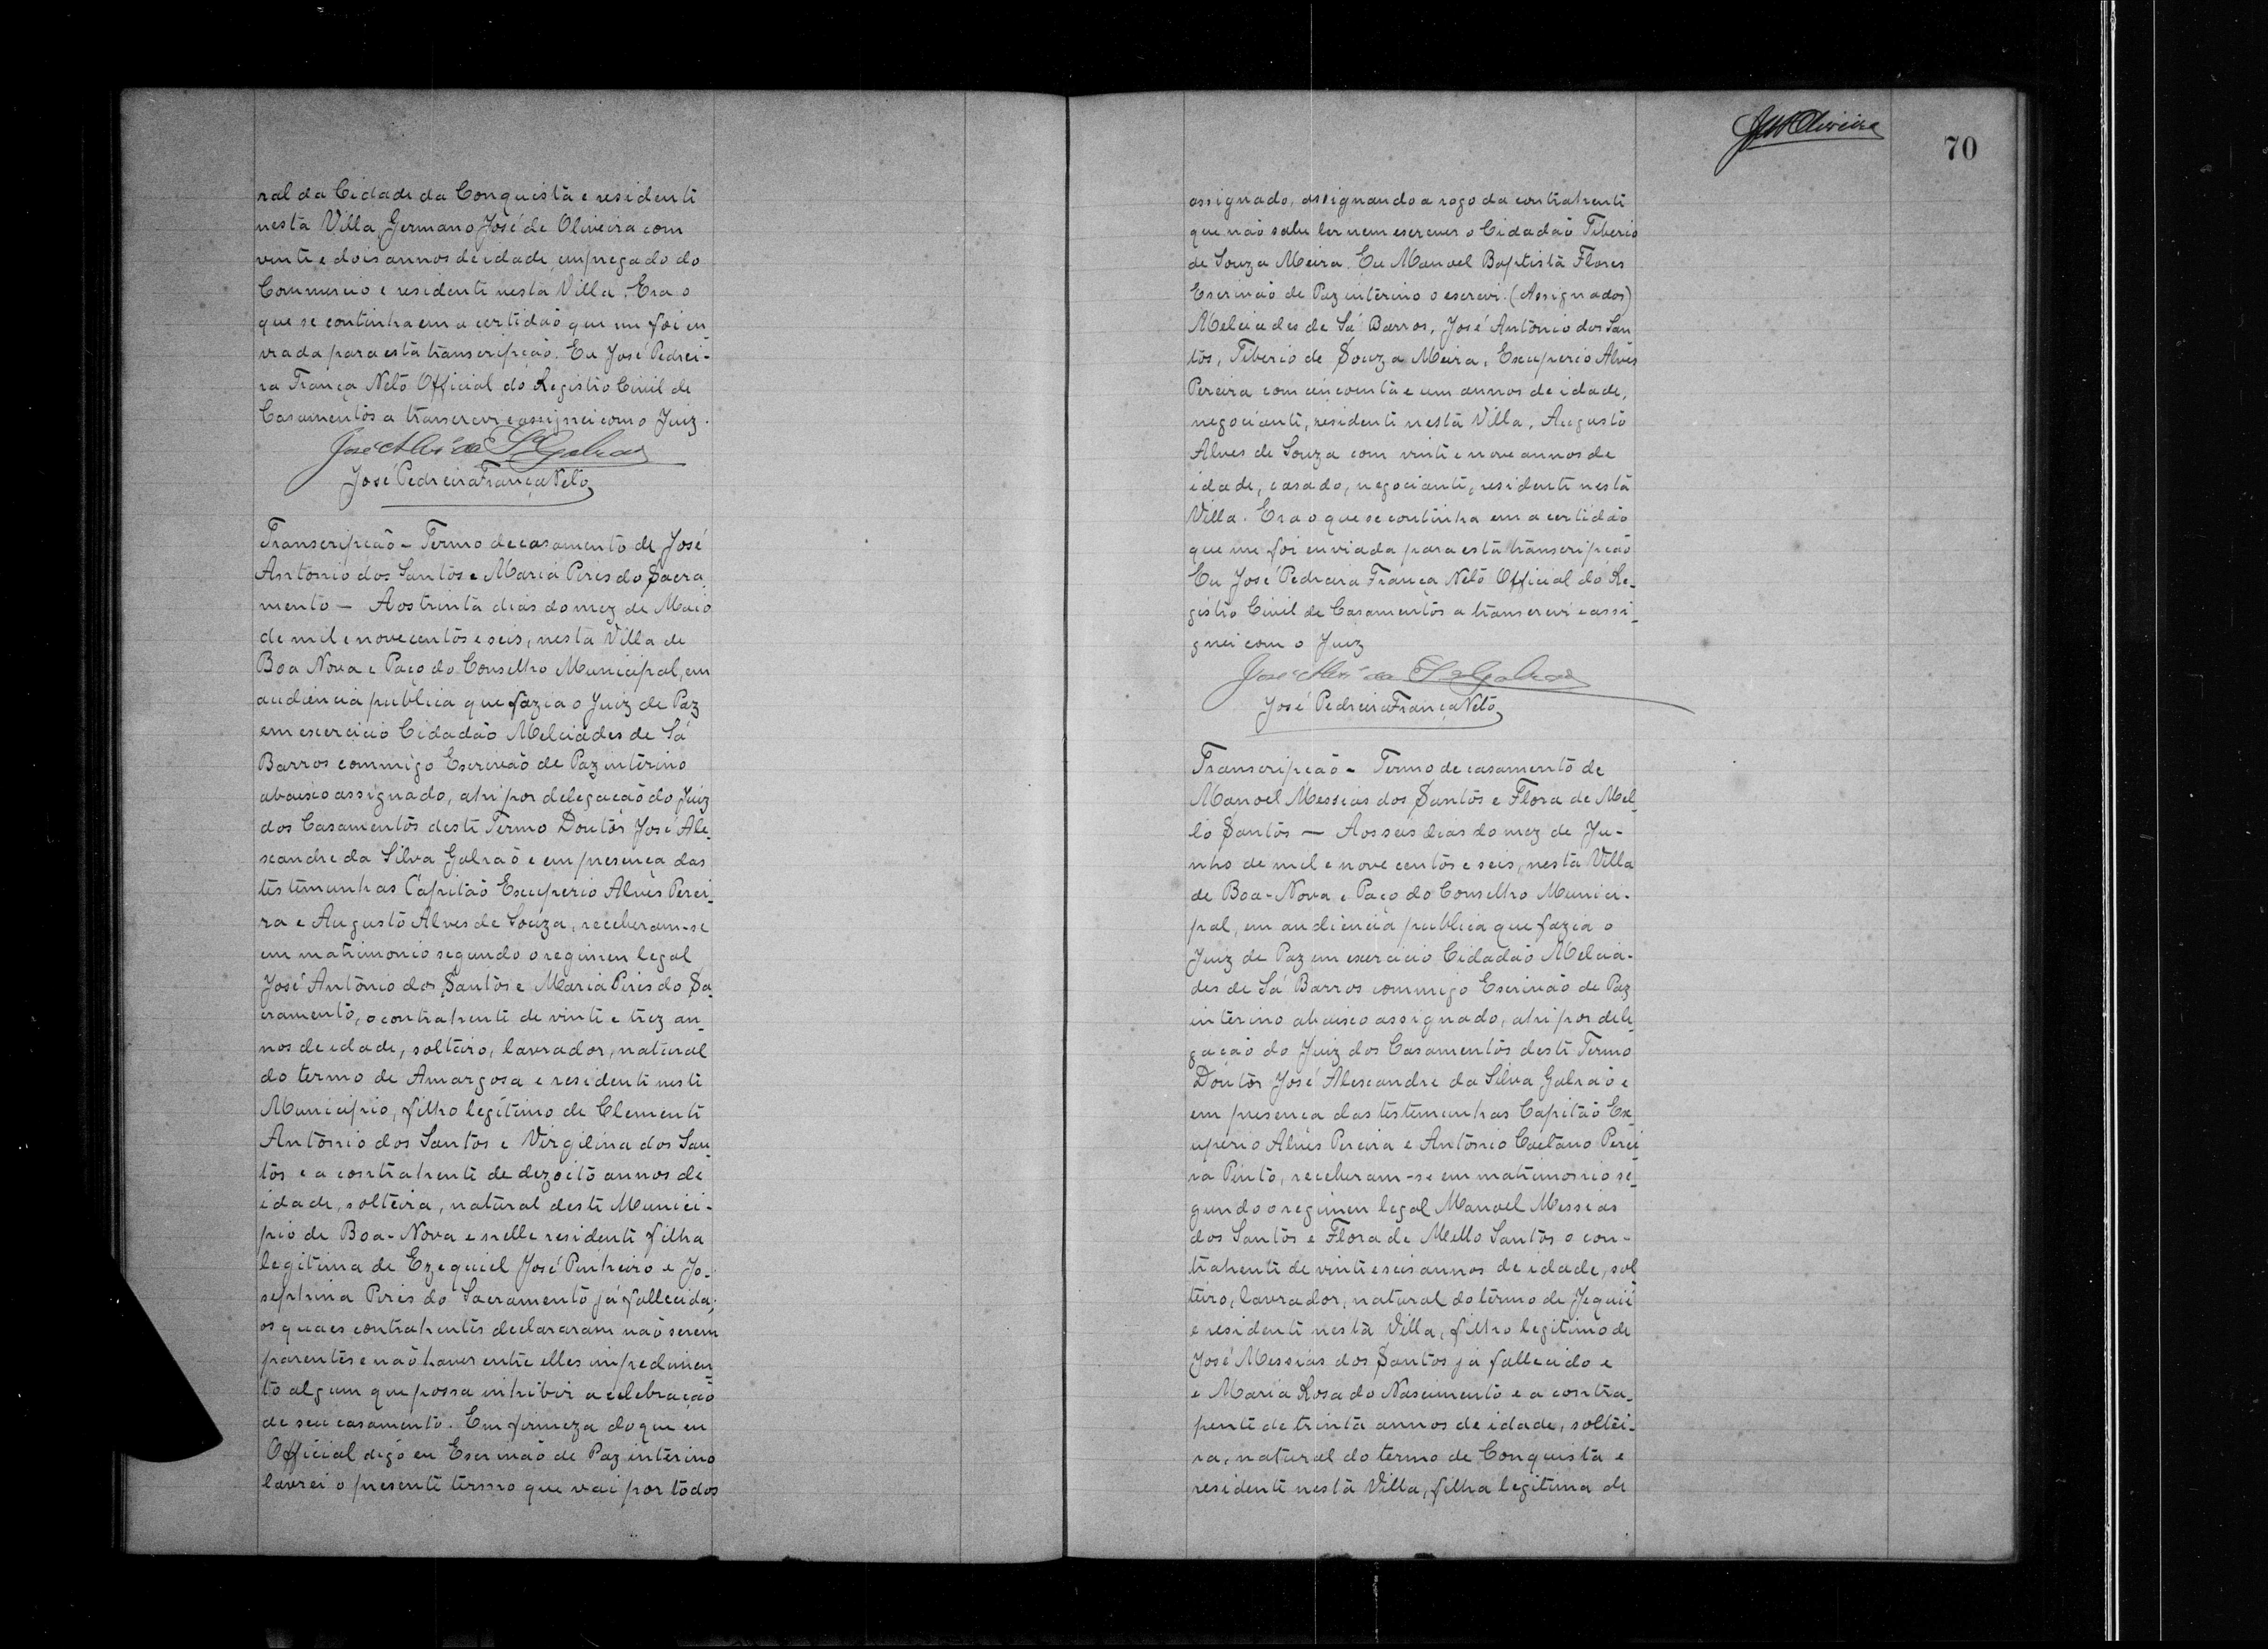 ral da Cidade da Conquista e residente
nesta Villa, Germano José de Oliveira com
vinte e dois annos de idade, empregado do
Commercio e residente nesta Villa. Era o
que se continha em a certidão que me foi en-
viada para esta transcripção. Eu José Pedrei-
ra França Netto Official do Registro Civil de
Casamentos a transcrevi e assignei com o Juiz.
José Alex da Sa Galrao
José Pedreira França Netto
Transcripção - Termo de casamento de José
Antonio dos Santos e Maria Pires do Sacra-
mento — Aos trinta dias do mez de Maio
de mil e novecentos e seis, nesta Villa de
Boa Nova e Paço do Conselho Municipal, em
audiencia publica que fazia o Juiz de Paz
em exercicio Cidadão Melciades de Sá
Barros commigo Escrivão de Paz interino
abaixo assignado, ahi por delegação do Juiz
dos Casamentos deste Termo Doutor José Ale-
xandre da Silva Galrão e em presença das
testemunhas Capitão Exuperio Alves Perei-
ra e Augusto Alves de Souza, receberam-se
em matrimonio segundo o regimen legal
José Antonio dos Santos e Maria Pires do Sa-
cramento, o contrahente de vinte e trez an-
nos de idade, solteiro, lavrador, natural
do termo de Amargosa e residente neste
Municipio, filho legitimo de Clemente
Antonio dos Santos e Virgilina dos San-
tos e a contrahente de dezoito annos de
idade, solteira, natural deste Munici-
pio de Boa-Nova e nelle residente filha
legitima de Ezequiel José Pinheiro e Jo-
sephina Pires do Sacramento já fallecida;
os quaes contrahentes declararam não serem
parentes e não haver entre elles impedimen-
to algum que possa inhibir a celebração
de seu casamento. Em firmeza do que eu
Official digo eu Escrivão de Paz interino
lavrei o presente termo que vai por todos
70
assignado, assignando a rogo da contrahente
que não sabe ler nem escrever o Cidadão Tiberio
de Souza Meira. Eu Manoel Baptista Flores
Escrivão de Paz interino o escrevi. (Assignados)
Melciades de Sá Barros, José Antonio dos San
tos, Tiberio de Souza Meira, Exuperio Alves
Pereira com cincoenta e um annos de idade,
negociante, residente nesta Villa, Augusto
Alves de Souza com vinte e nove annos de
idade, casado, negociante, residente nesta
Villa. Era o que se continha em a certidão
que me foi enviada para esta transcripção
Eu José Pedreira França Netto Official do Re-
gistro Civil de Casamentos a transcrevi e assi-
gnei com o Juiz
José Alex da Sa Galrao
José Pedreira França Netto
Transcripção - Termo de casamento de
Manoel Messias dos Santos e Flora de Mel-
lo Santos — Aos seis dias do mez de Ju-
nho de mil e nove centos e seis, nesta Villa
de Boa-Nova e Paço do Conselho Munici-
pal, em audiencia publica que fazia o
Juiz de Paz em exercicio Cidadão Melcia-
des de Sá Barros commigo Escrivão de Paz
interino abaixo assignado, ahi por dele-
gação do Juiz dos Casamentos deste Termo
Doutor José Alexandre da Silva Galrão e
em presença das testemunhas Capitão Ex-
uperio Alves Pereira e Antonio Caetano Perei
ra Pinto, receberam-se em matrimonio se-
gundo o regimen legal Manoel Messias
dos Santos e Flora de Mello Santos o con-
trahente de vinte e seis annos de idade, sol
teiro, lavrador, natural do termo de Jequié
e residente nesta Villa, filho legitimo de
José Messias dos Santos já fallecido e
e Maria Rosa do Nascimento e a contra-
hente de trinta annos de idade, soltei-
ra, natural do termo de Conquista e
residente nesta Villa, filha legitima de